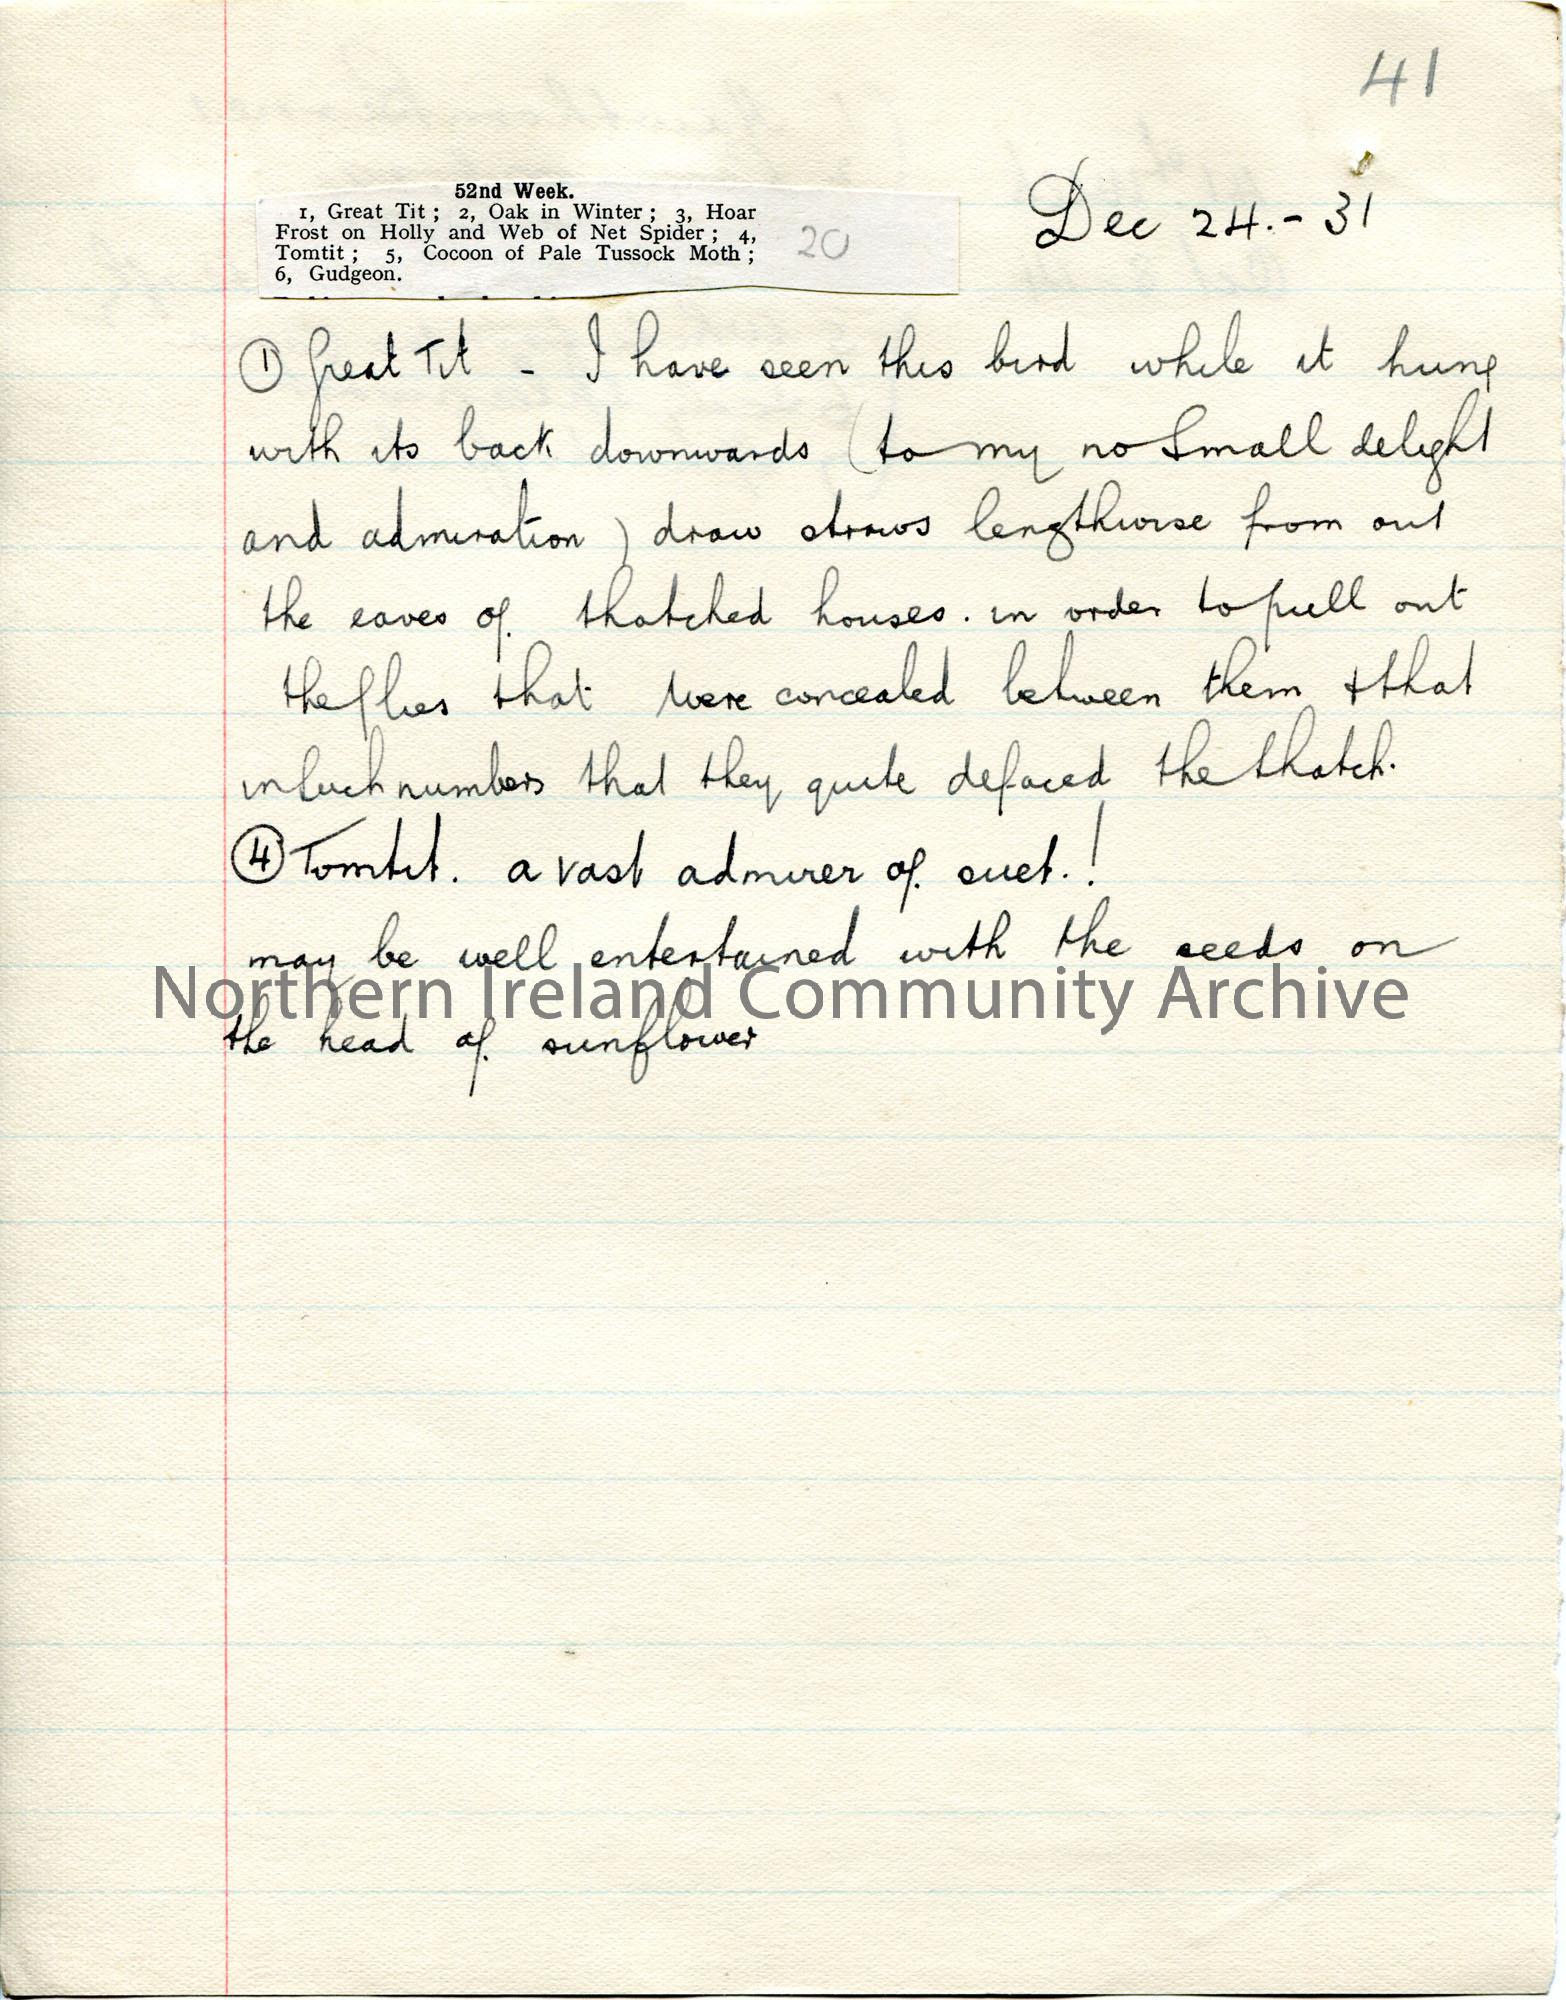 41
Dec 24.- 31
52nd Week.
1, Great Tit; 2, Oak in Winter; 3, Hoar
Frost on Holly and Web of Net Spider; 4,
Tomtit; 5, Cocoon of Pale Tussock Moth;
6, Gudgeon.
20
① Great Tit - I have seen this bird while it hung
with its back downwards (to my no small delight
and admiration) draw straws lengthwise from out
the eaves of thatched houses. in order to pull out
the flies that were concealed between them & that
in such numbers that they quite defaced the thatch.
④ Tomtit. a vast admirer of suet.!
may be well entertained with the seeds on
Northern Ireland Community Archive
the head of sunflower